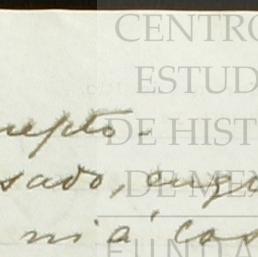 CENTRO
ESTUD
DE HIST
DE ME
FUNDA
cepto.
sado, cuyo
ni á cas